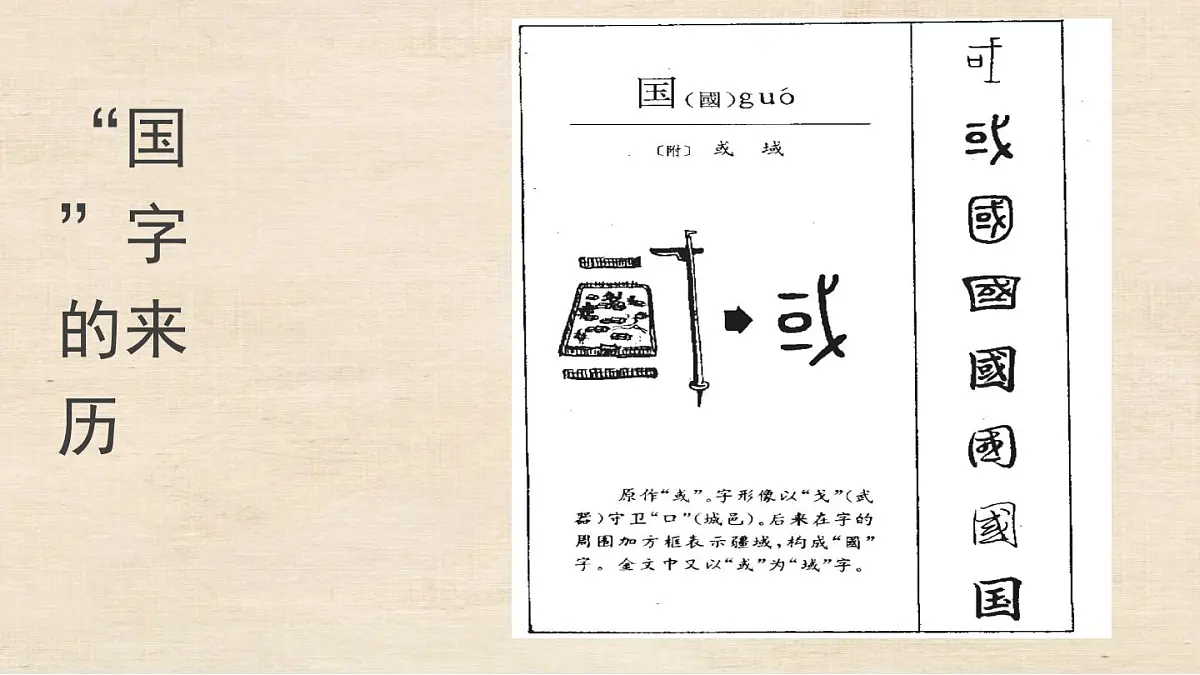 “国字来
”的历
国（國）guó
〔附〕 或 域
或
原作“或”。字形像以“戈”（武
器）守卫“口”（城邑）。后来在字的
周围加方框表示疆域，构成“國”
字。金文中又以“或”为“域”字。
或
或
國
國
國
國
國
国